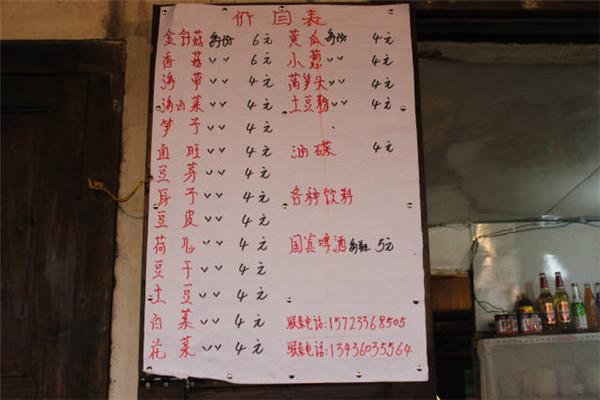 价目表
金针菇 每份 6元
香菇 〃 6元
海带 〃 4元
海白菜 〃 4元
笋子 〃 4元
血旺 〃 4元
豆芽 〃 4元
耳子 〃 4元
豆皮 〃 4元
荷儿 〃 4元
豆干 〃 4元
土豆 〃 4元
白菜 〃 4元
花菜 〃 4元
黄瓜 每份 4元
小葱 〃 4元
莴笋头 〃 4元
土豆粉 〃 4元
油碟 4元
各种饮料
国宾啤酒 每瓶 5元
联系电话:15723368505
联系电话:13436035564